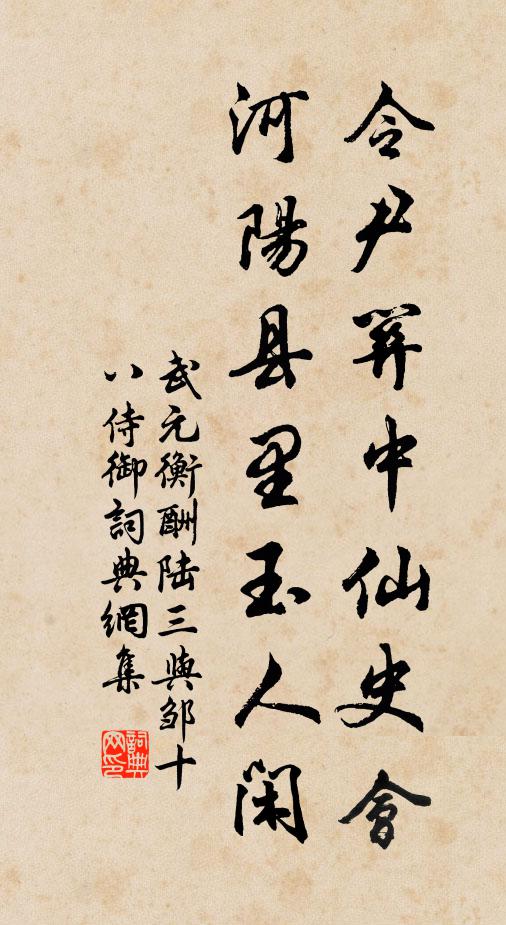 令尹關中仙史會
河陽县里玉人闲
武元衡酬陆三與邹十
八侍御詞典網集
詞典
网印